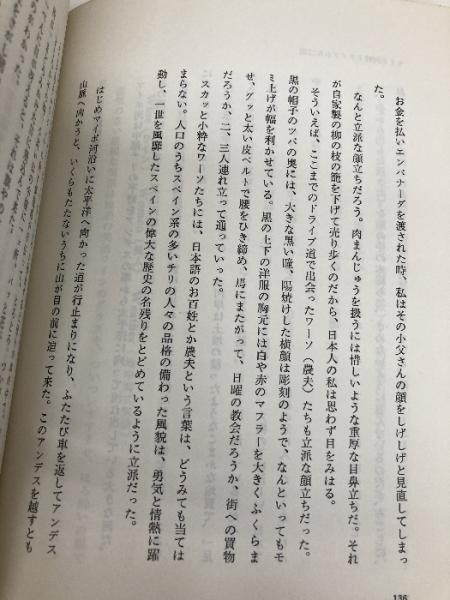 お金を払いエンパナーダを渡された時、私はその小父さんの顔をしげしげと見直してしまっ
た。
なんと立派な顔立ちだろう。肉まんじゅうを扱うには惜しいような重厚な目鼻立ちだ。それ
が自家製の柳の枝の籠を下げて売り歩くのだから、日本人の私は思わず目をみはる。
そういえば、ここまでのドライブ道で出会ったワーソ（農夫）たちも立派な顔立ちだった。
黒の帽子のツバの奥には、大きな黒い瞳、陽焼けした横顔は彫刻のようで、なんといってもモ
ミ上げが幅を利かせている。黒の上下の洋服の胸元には白や赤のマフラーを大きくふくらま
せ、グッと太い皮ベルトで腰をひき締め、馬にまたがって、日曜の教会だろうか、街への買物
だろうか、二、三人連れ立って通っていった。
スカッと小粋なワーソたちには、日本語のお百姓とか農夫という言葉は、どうみても当ては
まらない。人口のうちスペイン系の多いチリの人々の品格の備わった風貌は、勇気と情熱に躍
動し、一世を風靡したスペインの偉大な歴史の名残りをとどめているように立派だった。
はじめマイポ河沿いに太平洋へ向かった道が行止まりになり、ふたたび車を返してアンデス
山脈へ向かうと、いくらもたたないうちに山が目の前に迫って来た。このアンデスを越すとも
136